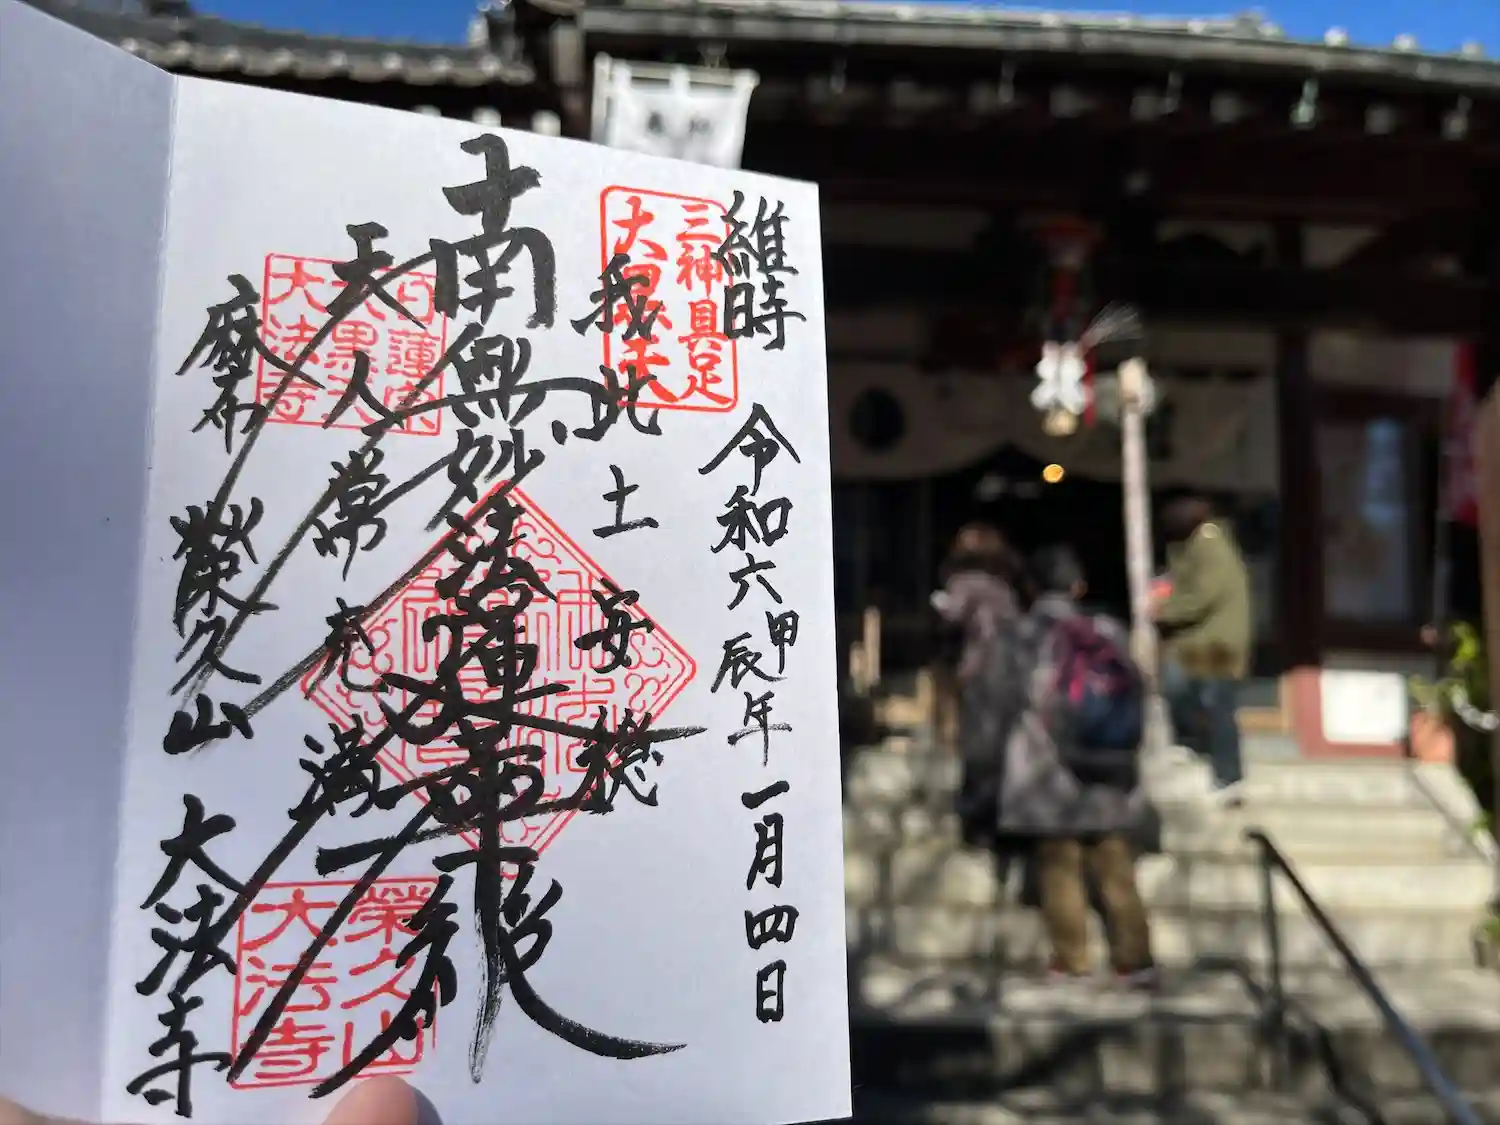 維時 令和六甲辰年一月四日
三神具足
大黒天
我此土安穏
南無妙法蓮華経
天人常充満
日蓮宗
大黒天
大法寺
榮久山
大法寺
麻布 榮久山 大法寺